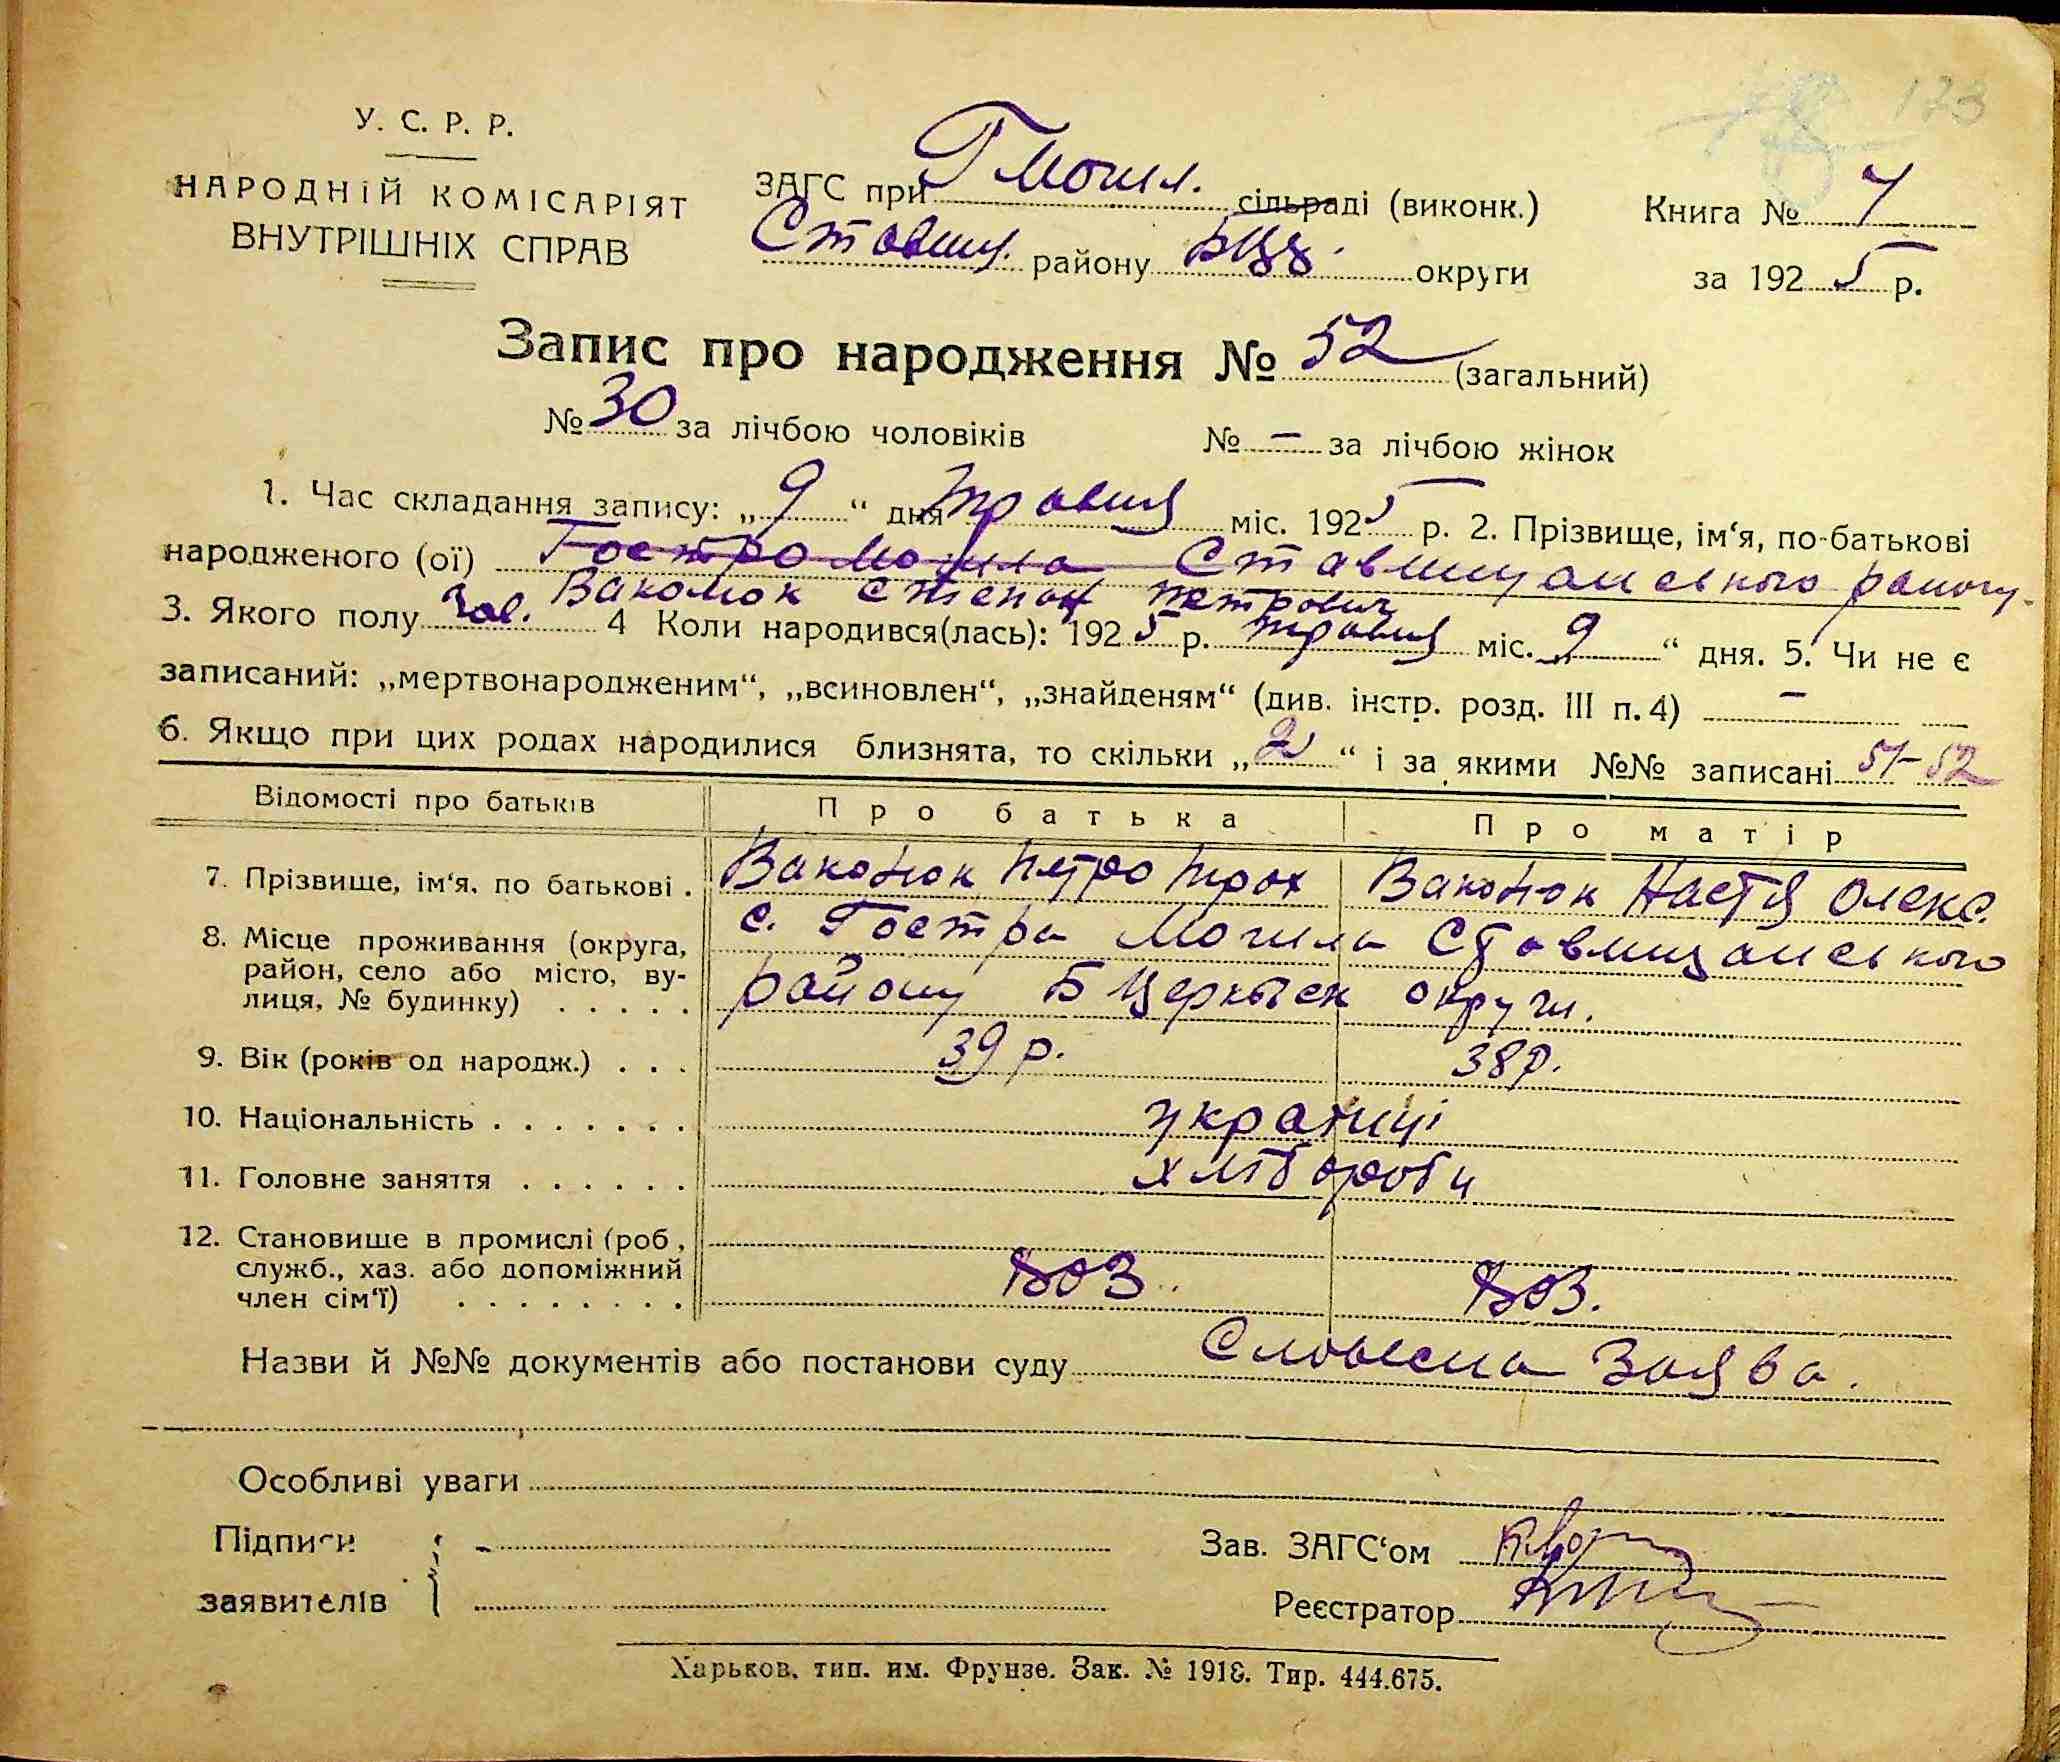 173
У. С. Р. Р.
НАРОДНІЙ КОМІСАРІЯТ
ВНУТРІШНІХ СПРАВ
ЗАГС при ГМогил. сільраді (виконк.)
Ставищ. району БЦ округи
Книга № 1
за 1925 р.
Запис про народження № 52 (загальний)
№ 30 за лічбою чоловіків № – за лічбою жінок
1. Час складання запису: „ 9 “ дня травня міс. 1925 р. 2. Прізвище, ім‘я, по-батькові
народженого (ої) Гостро Могила Ставищанського району
Ваколюк Степан Петрович
3. Якого полу Чол. 4 Коли народився(лась): 1925 р. травня міс. „ 9 “ дня. 5. Чи не є
записаний: „мертвонародженим“, „всиновлен“, „знайденям“ (див. інстр. розд. III п. 4) –
6. Якщо при цих родах народилися близнята, то скільки „ 2 “ і за якими №№ записані 51-52
Відомості про батьків Про батька Про матір
7. Прізвище, ім‘я, по батькові . Ваколюк Петро Трох Ваколюк Настя Олекс.
8. Місце проживання (округа, район, село або місто, вулиця, № будинку) . . . . . с. Гостра Могила Ставищанського
району БЦерківск округи.
9. Вік (років од народж.) . . . 39 р. 38 р.
10. Національність . . . . . . . українці
11. Головне заняття . . . . . . хлібороби
12. Становище в промислі (роб., служб., хаз. або допоміжний член сім‘ї) . . . . . . . .
Назви й №№ документів або постанови суду Словесна Заява.
Особливі уваги
Підписи заявителів
Зав. ЗАГС‘ом
Реєстратор
Харьков, тип. им. Фрунзе. Зак. № 1918. Тир. 444.675.